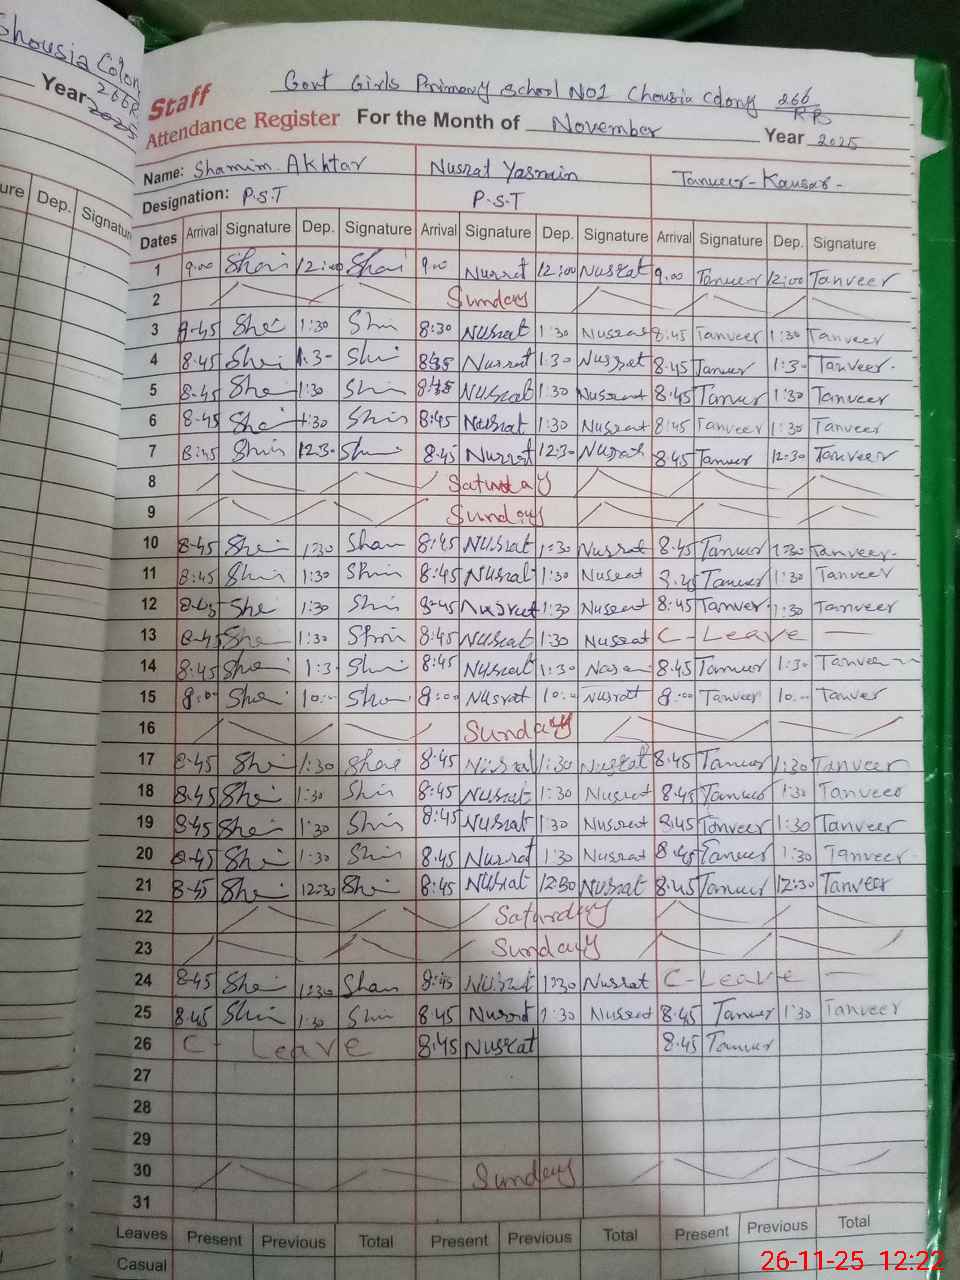 Colony
266R
Year 2025
ure Dep. Signature
Govt Girls Primary School No1 Ghousia Colony 266/RB
Staff
Attendance Register For the Month of November Year 2025
Name: Shamim Akhtar Nusrat Yasmin Tanveer-Kausar-
Designation: P.S.T P.S.T
Dates Arrival Signature Dep. Signature Arrival Signature Dep. Signature Arrival Signature Dep. Signature
1 9.00 12:00 9.00 Nusrat 12:00 Nusrat 9.00 Tanveer 12:00 Tanveer
2 Sunday
3 8-45 1:30 8:30 Nusrat 1:30 Nusrat 8:45 Tanveer 1:30 Tanveer
4 8.45 1.3- Nusrat 1:30 Nusrat 8.45 Tanveer 1:3- Tanveer.
5 8.45 1:30 Nusrat 1:30 Nusrat 8.45 Tanveer 1:30 Tanveer
6 8.45 1:30 8:45 Nusrat 1:30 Nusrat 8:45 Tanveer 1:30 Tanveer
7 8:45 12:3- 8.45 Nusrat 12:3- Nusrat 8.45 Tanveer 12:30 Tanveer
8 Saturday
9 Sunday
10 8-45 1:30 8:45 Nusrat 1:30 Nusrat 8:45 Tanveer 1:30 Tanveer.
11 8:45 1:30 8:45 Nusrat 1:30 Nusrat 8:45 Tanveer 1:30 Tanveer
12 8-45 1:30 8-45 Nusrat 1:30 Nusrat 8:45 Tanveer 1:30 Tanveer
13 8-45 1:30 8:45 Nusrat 1:30 Nusrat C-Leave —
14 8:45 1:3- 8:45 Nusrat 1:30 8.45 Tanveer 1:30 Tanveer
15 8:00 10:00 8:00 Nusrat 10:00 Nusrat 8:00 Tanveer 10:00 Tanveer
16 Sunday
17 8-45 1:30 8.45 Nusrat 1:30 Nusrat 8.45 Tanveer 1:30 Tanveer
18 8.45 1:30 8:45 Nusrat 1:30 Nusrat 8.45 Tanveer 1:30 Tanveer
19 8.45 1:30 8:45 Nusrat 1:30 Nusrat 8:45 Tanveer 1:30 Tanveer
20 8.45 1:30 8.45 Nusrat 1:30 Nusrat 8.45 Tanveer 1:30 Tanveer
21 8-45 12:30 8:45 Nusrat 12:30 Nusrat 8:45 Tanveer 12:30 Tanveer
22 Saturday
23 Sunday
24 8-45 1:30 8:45 Nusrat 1:30 Nusrat C-Leave —
25 8.45 1:30 8.45 Nusrat 1:30 Nusrat 8.45 Tanveer 1:30 Tanveer
26 C- Leave 8.45 Nusrat 8.45 Tanveer
27
28
29
30 Sunday
31
Leaves Present Previous Total Present Previous Total Present Previous Total
Casual
26-11-25 12:22